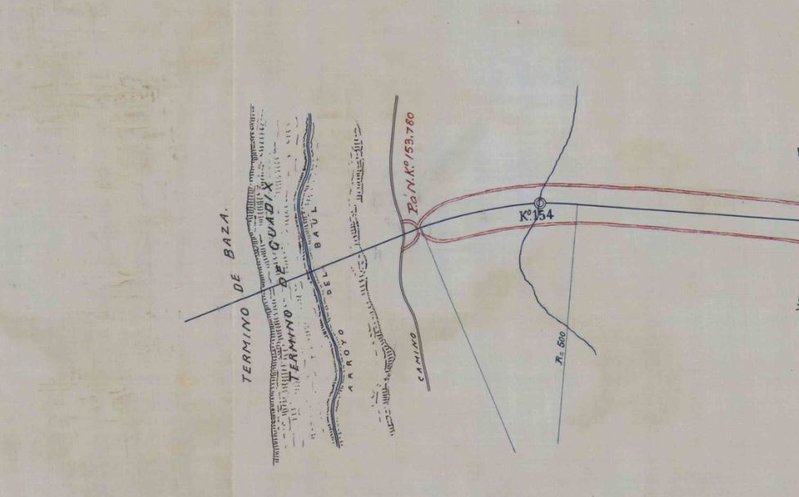 TERMINO DE BAZA.
TERMINO DE GUADIX
ARROYO DEL BAUL
CAMINO
P.a N. Kº 153.780
Kº 154
R = 500